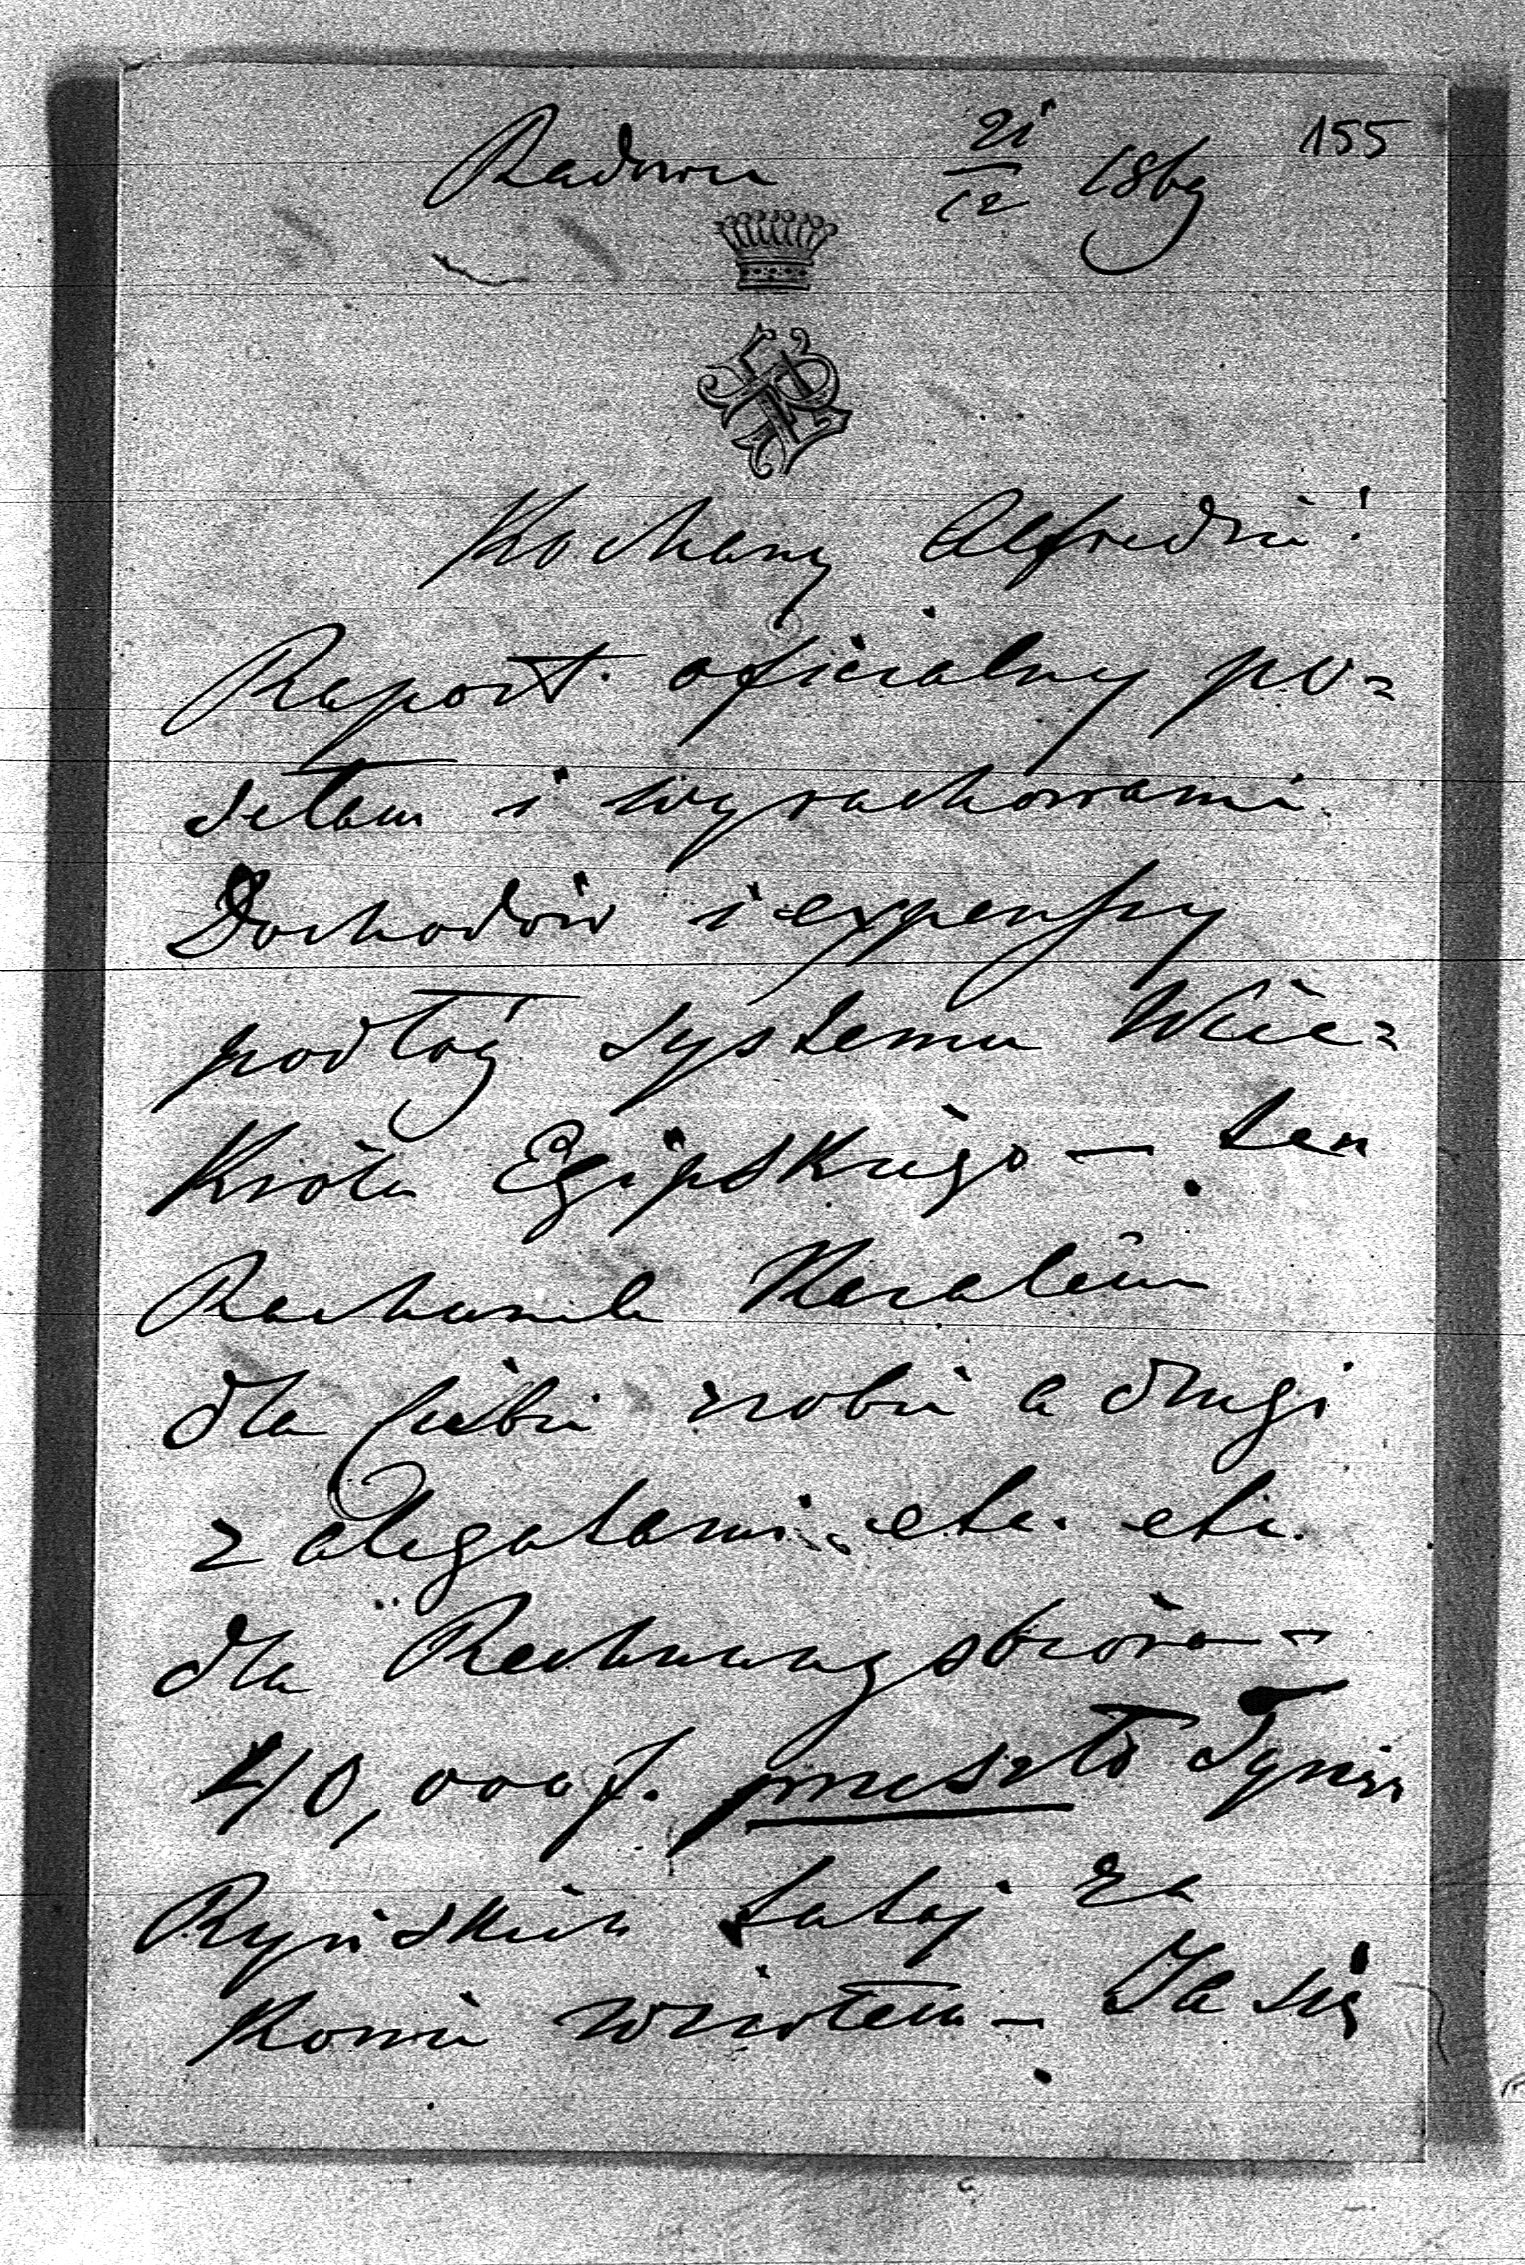 Radowa 21/12 1869 155
Kochany Alfredzie!
Raport oficialny po=
słałem i wyrachowanie
Dochodów i expensy
podług systemu Wice=
Króla Egipskiego — ten
Rachunek Kazałem
dla Ciebie zrobić a drugi
z alegatami etc. etc.
dla Rechnungsbióra —
40,000 f. przeszło Tysięcy
Ryńskich tutaj za
Konie wziołem — Ja się